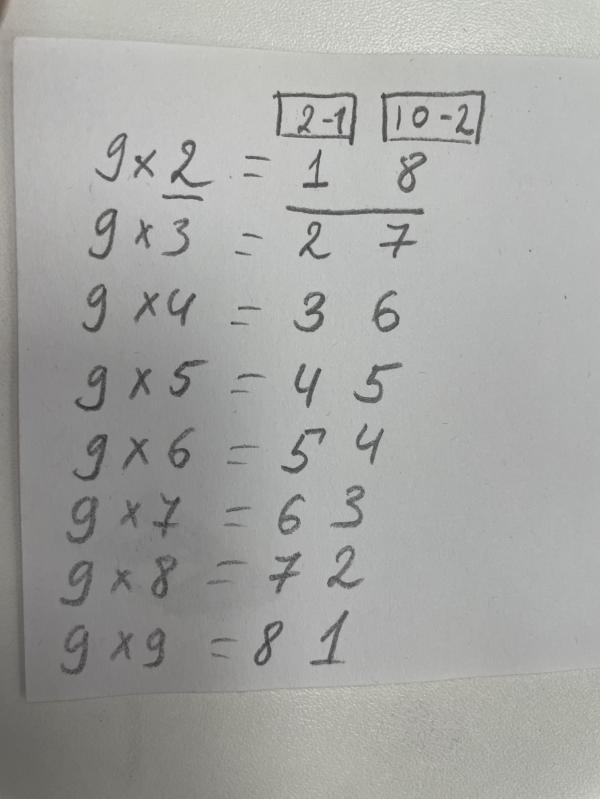 2-1 10-2
9 × 2 = 1 8
9 × 3 = 2 7
9 × 4 = 3 6
9 × 5 = 4 5
9 × 6 = 5 4
9 × 7 = 6 3
9 × 8 = 7 2
9 × 9 = 8 1